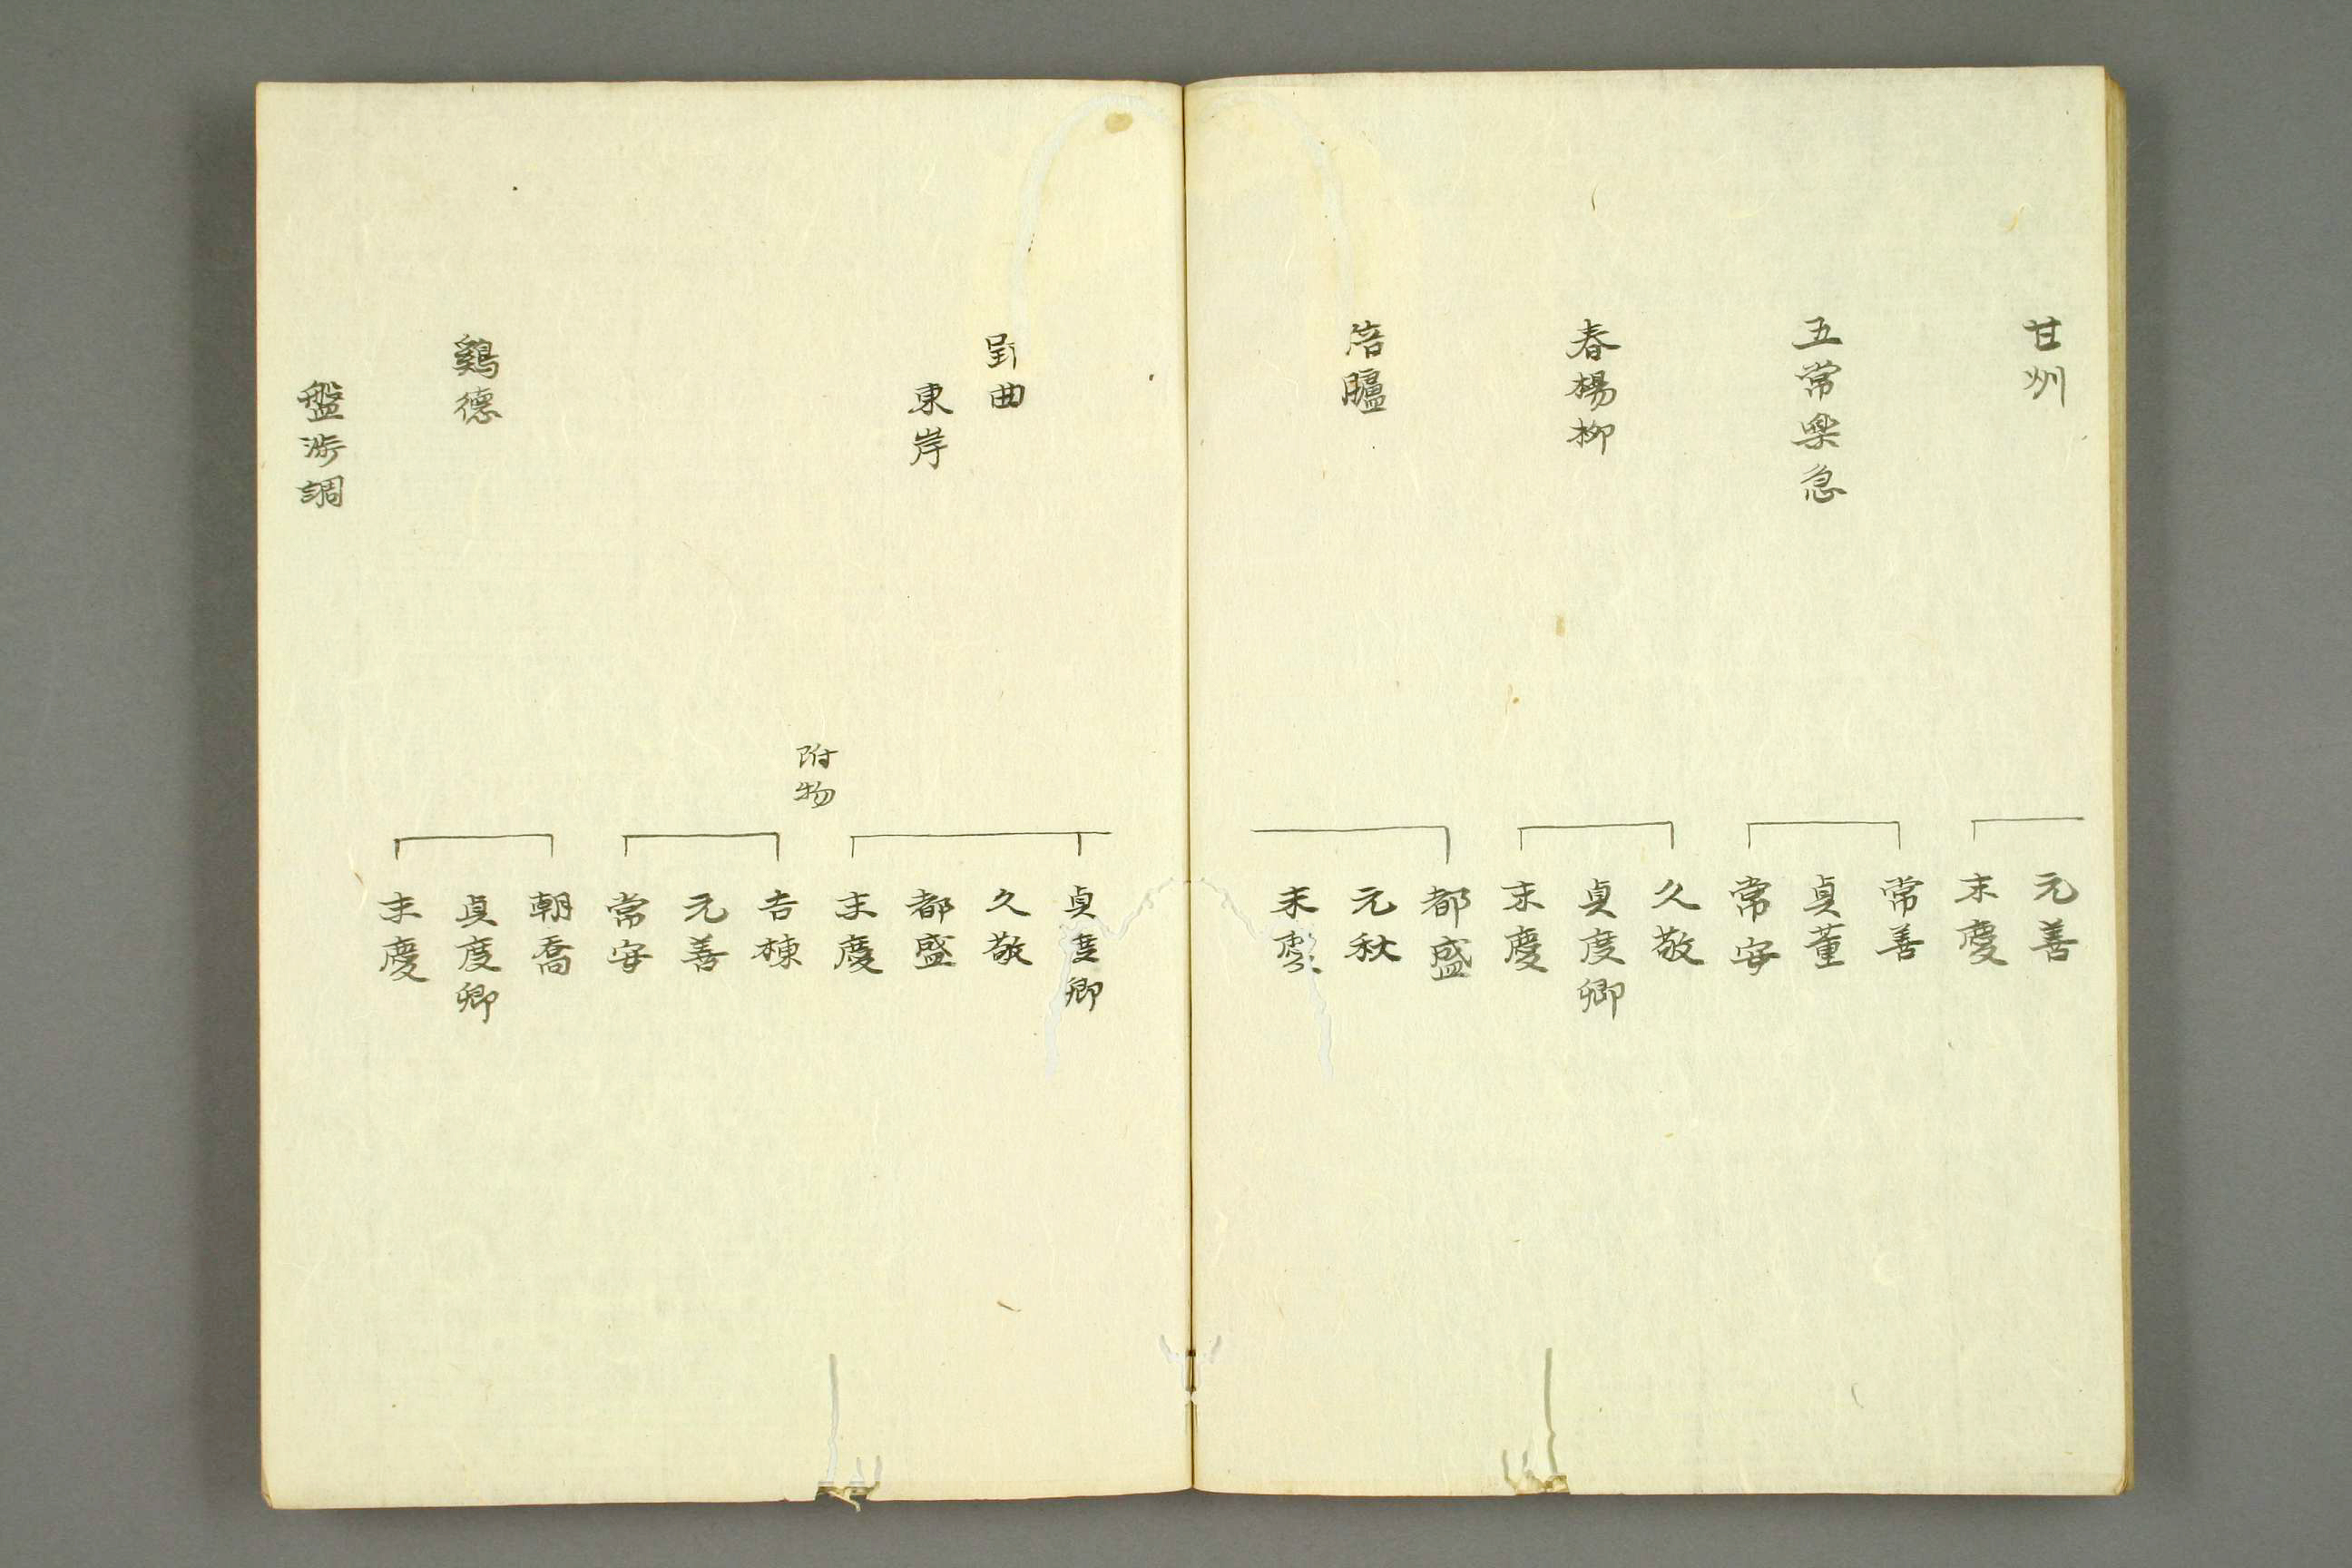 甘州
元善
末慶
五常楽急
常善
貞董
常安
春楊柳
久敬
貞度卿
末慶
倍臚
都盛
元秋
末
郢曲
東岸
貞度卿
久敬
都盛
末慶
附物
吉棟
元善
常安
鷄徳
朝喬
貞度卿
末慶
盤渉調